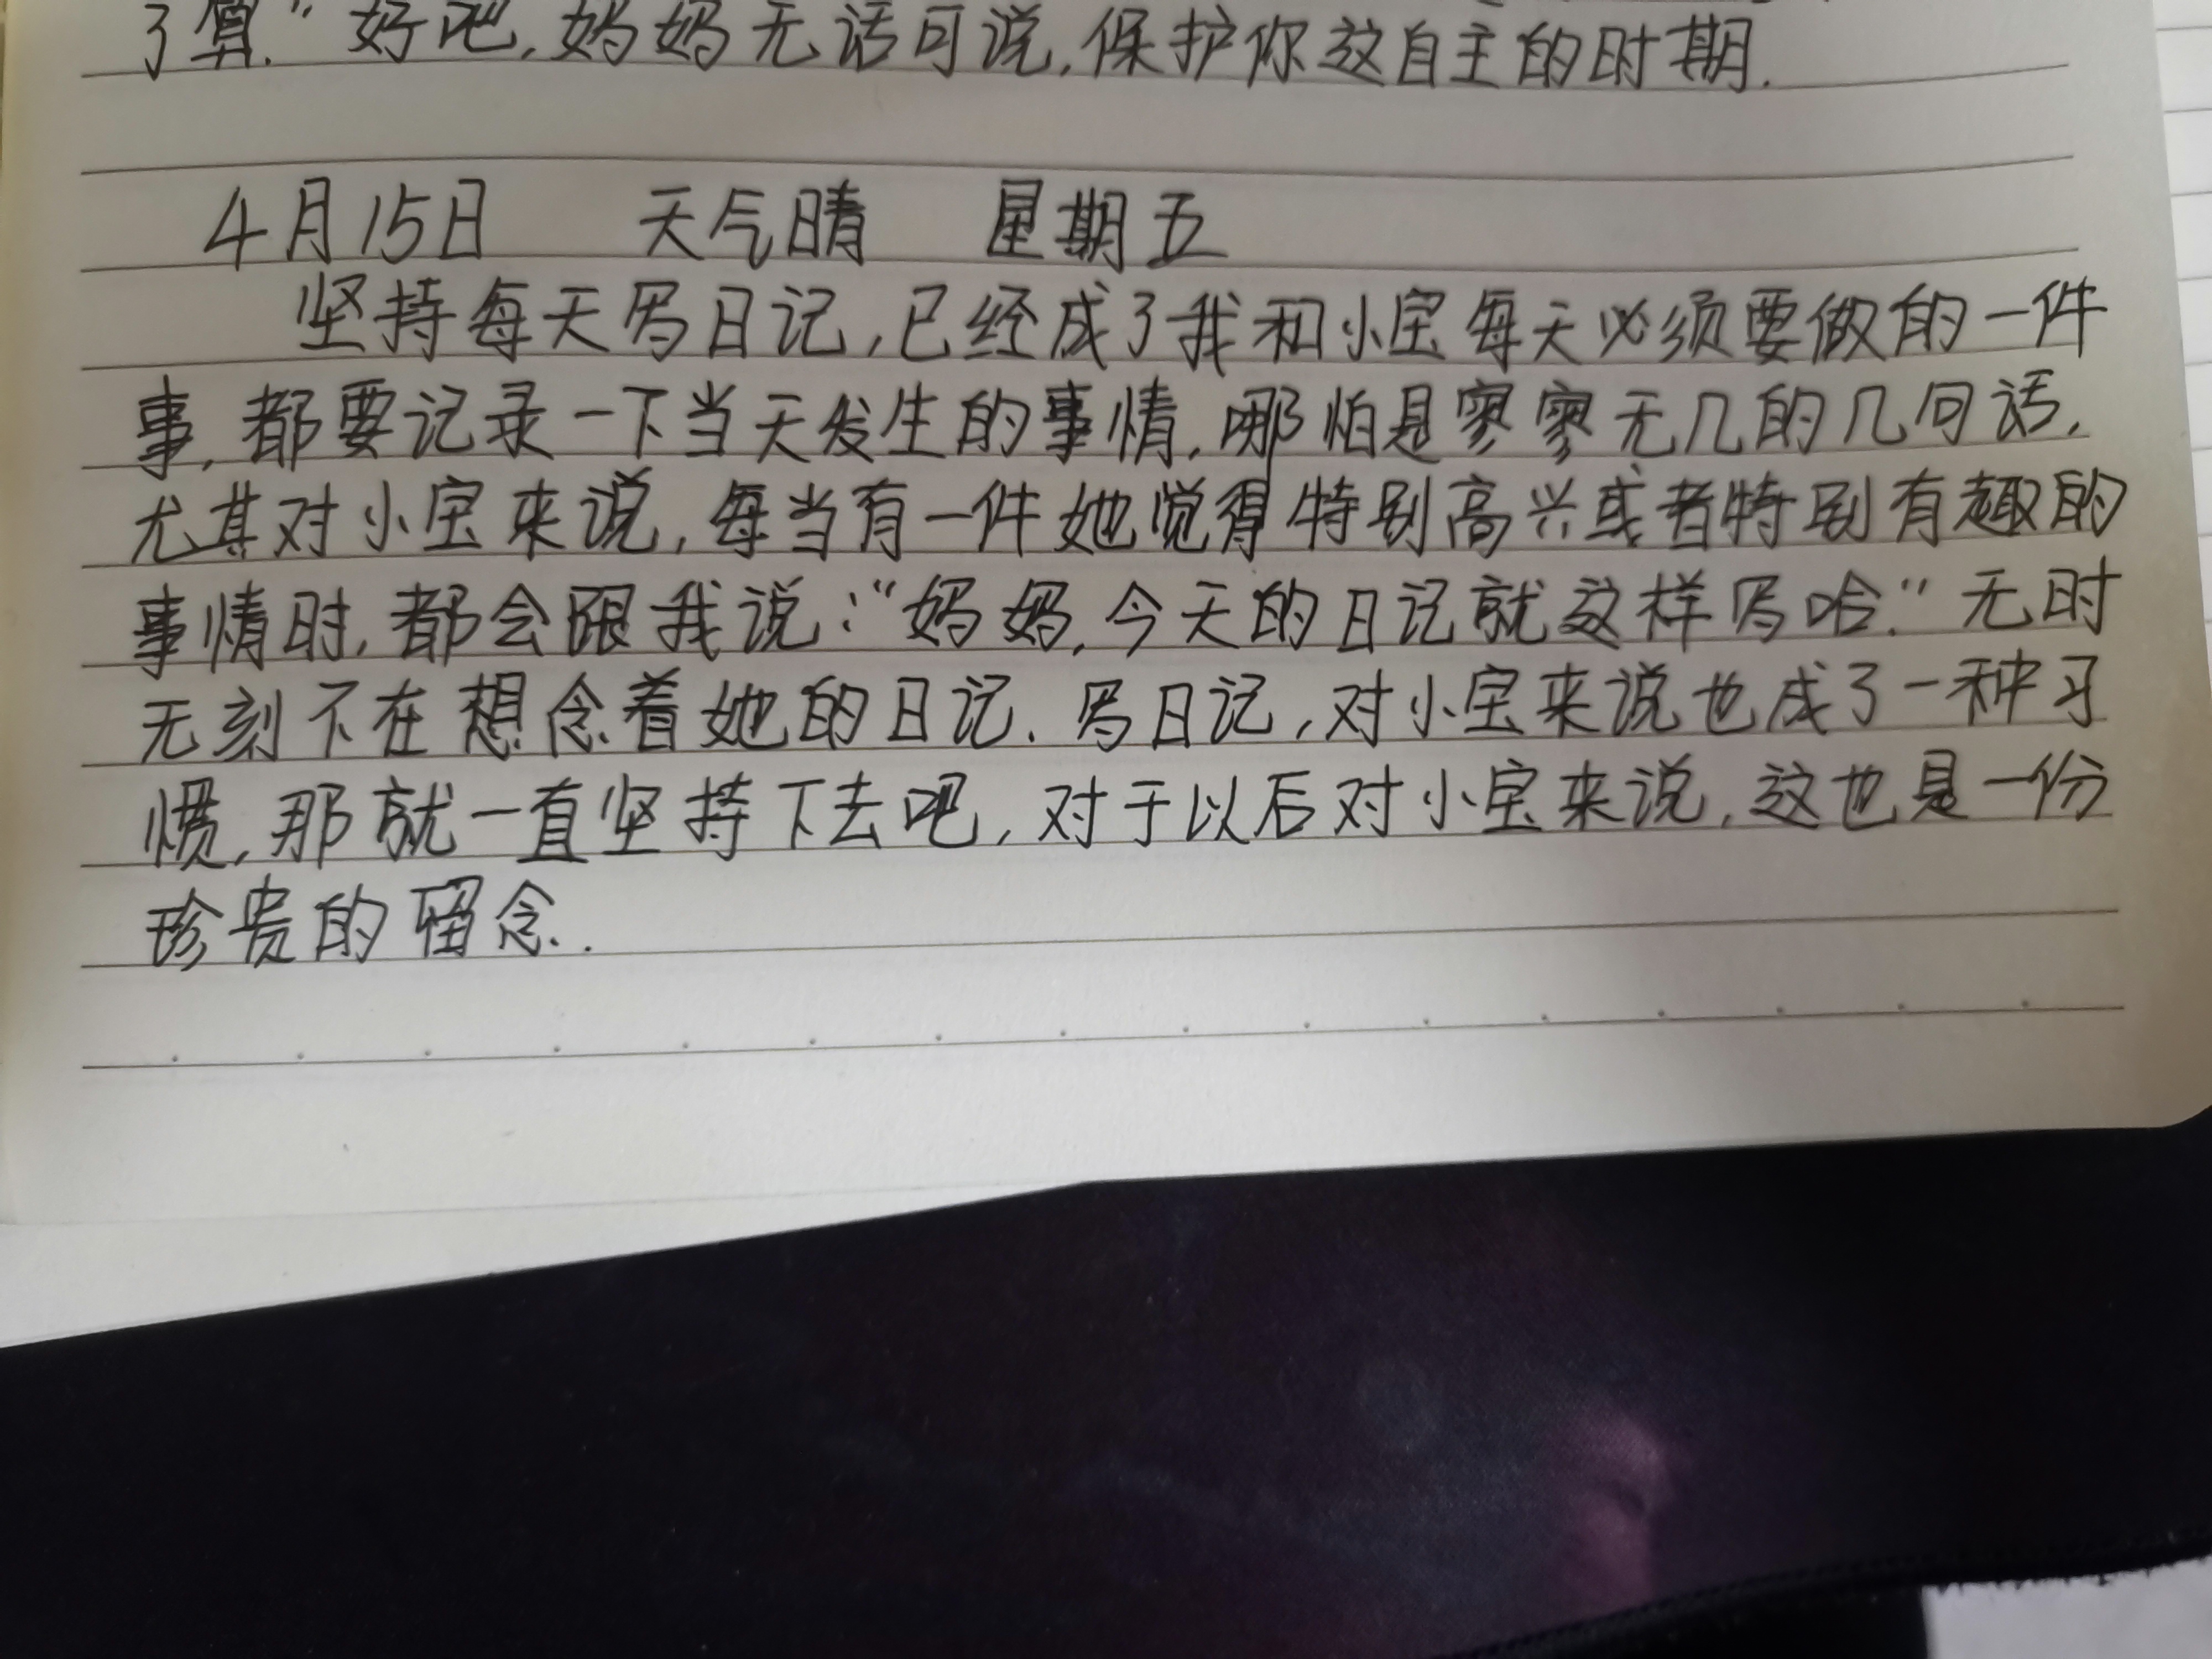 了算."好吧,妈妈无话可说,保护你这自主的时期.
4月15日 天气晴 星期五
坚持每天写日记,已经成了我和小宝每天必须要做的一件
事,都要记录一下当天发生的事情,哪怕是寥寥无几的几句话,
尤其对小宝来说,每当有一件她觉得特别高兴或者特别有趣的
事情时,都会跟我说:"妈妈,今天的日记就这样写哈."无时
无刻不在想念着她的日记.写日记,对小宝来说也成了一种习
惯,那就一直坚持下去吧,对于以后对小宝来说,这也是一份
珍贵的留念.